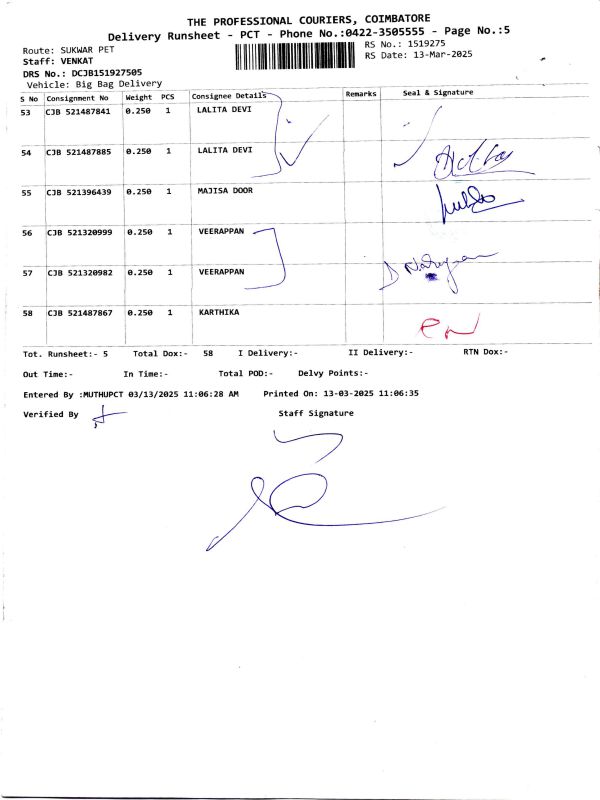 THE PROFESSIONAL COURIERS, COIMBATORE
Delivery Runsheet - PCT - Phone No.:0422-3505555 - Page No.:5
Route: SUKWAR PET
RS No.: 1519275
Staff: VENKAT
RS Date: 13-Mar-2025
DRS No.: DCJB151927505
Vehicle: Big Bag Delivery
S No Consignment No Weight PCS Consignee Details Remarks Seal & Signature
53 CJB 521487841 0.250 1 LALITA DEVI
54 CJB 521487885 0.250 1 LALITA DEVI
55 CJB 521396439 0.250 1 MAJISA DOOR
56 CJB 521320999 0.250 1 VEERAPPAN
57 CJB 521320982 0.250 1 VEERAPPAN
58 CJB 521487867 0.250 1 KARTHIKA
Tot. Runsheet:- 5 Total Dox:- 58 I Delivery:- II Delivery:- RTN Dox:-
Out Time:- In Time:- Total POD:- Delvy Points:-
Entered By :MUTHUPCT 03/13/2025 11:06:28 AM Printed On: 13-03-2025 11:06:35
Verified By Staff Signature